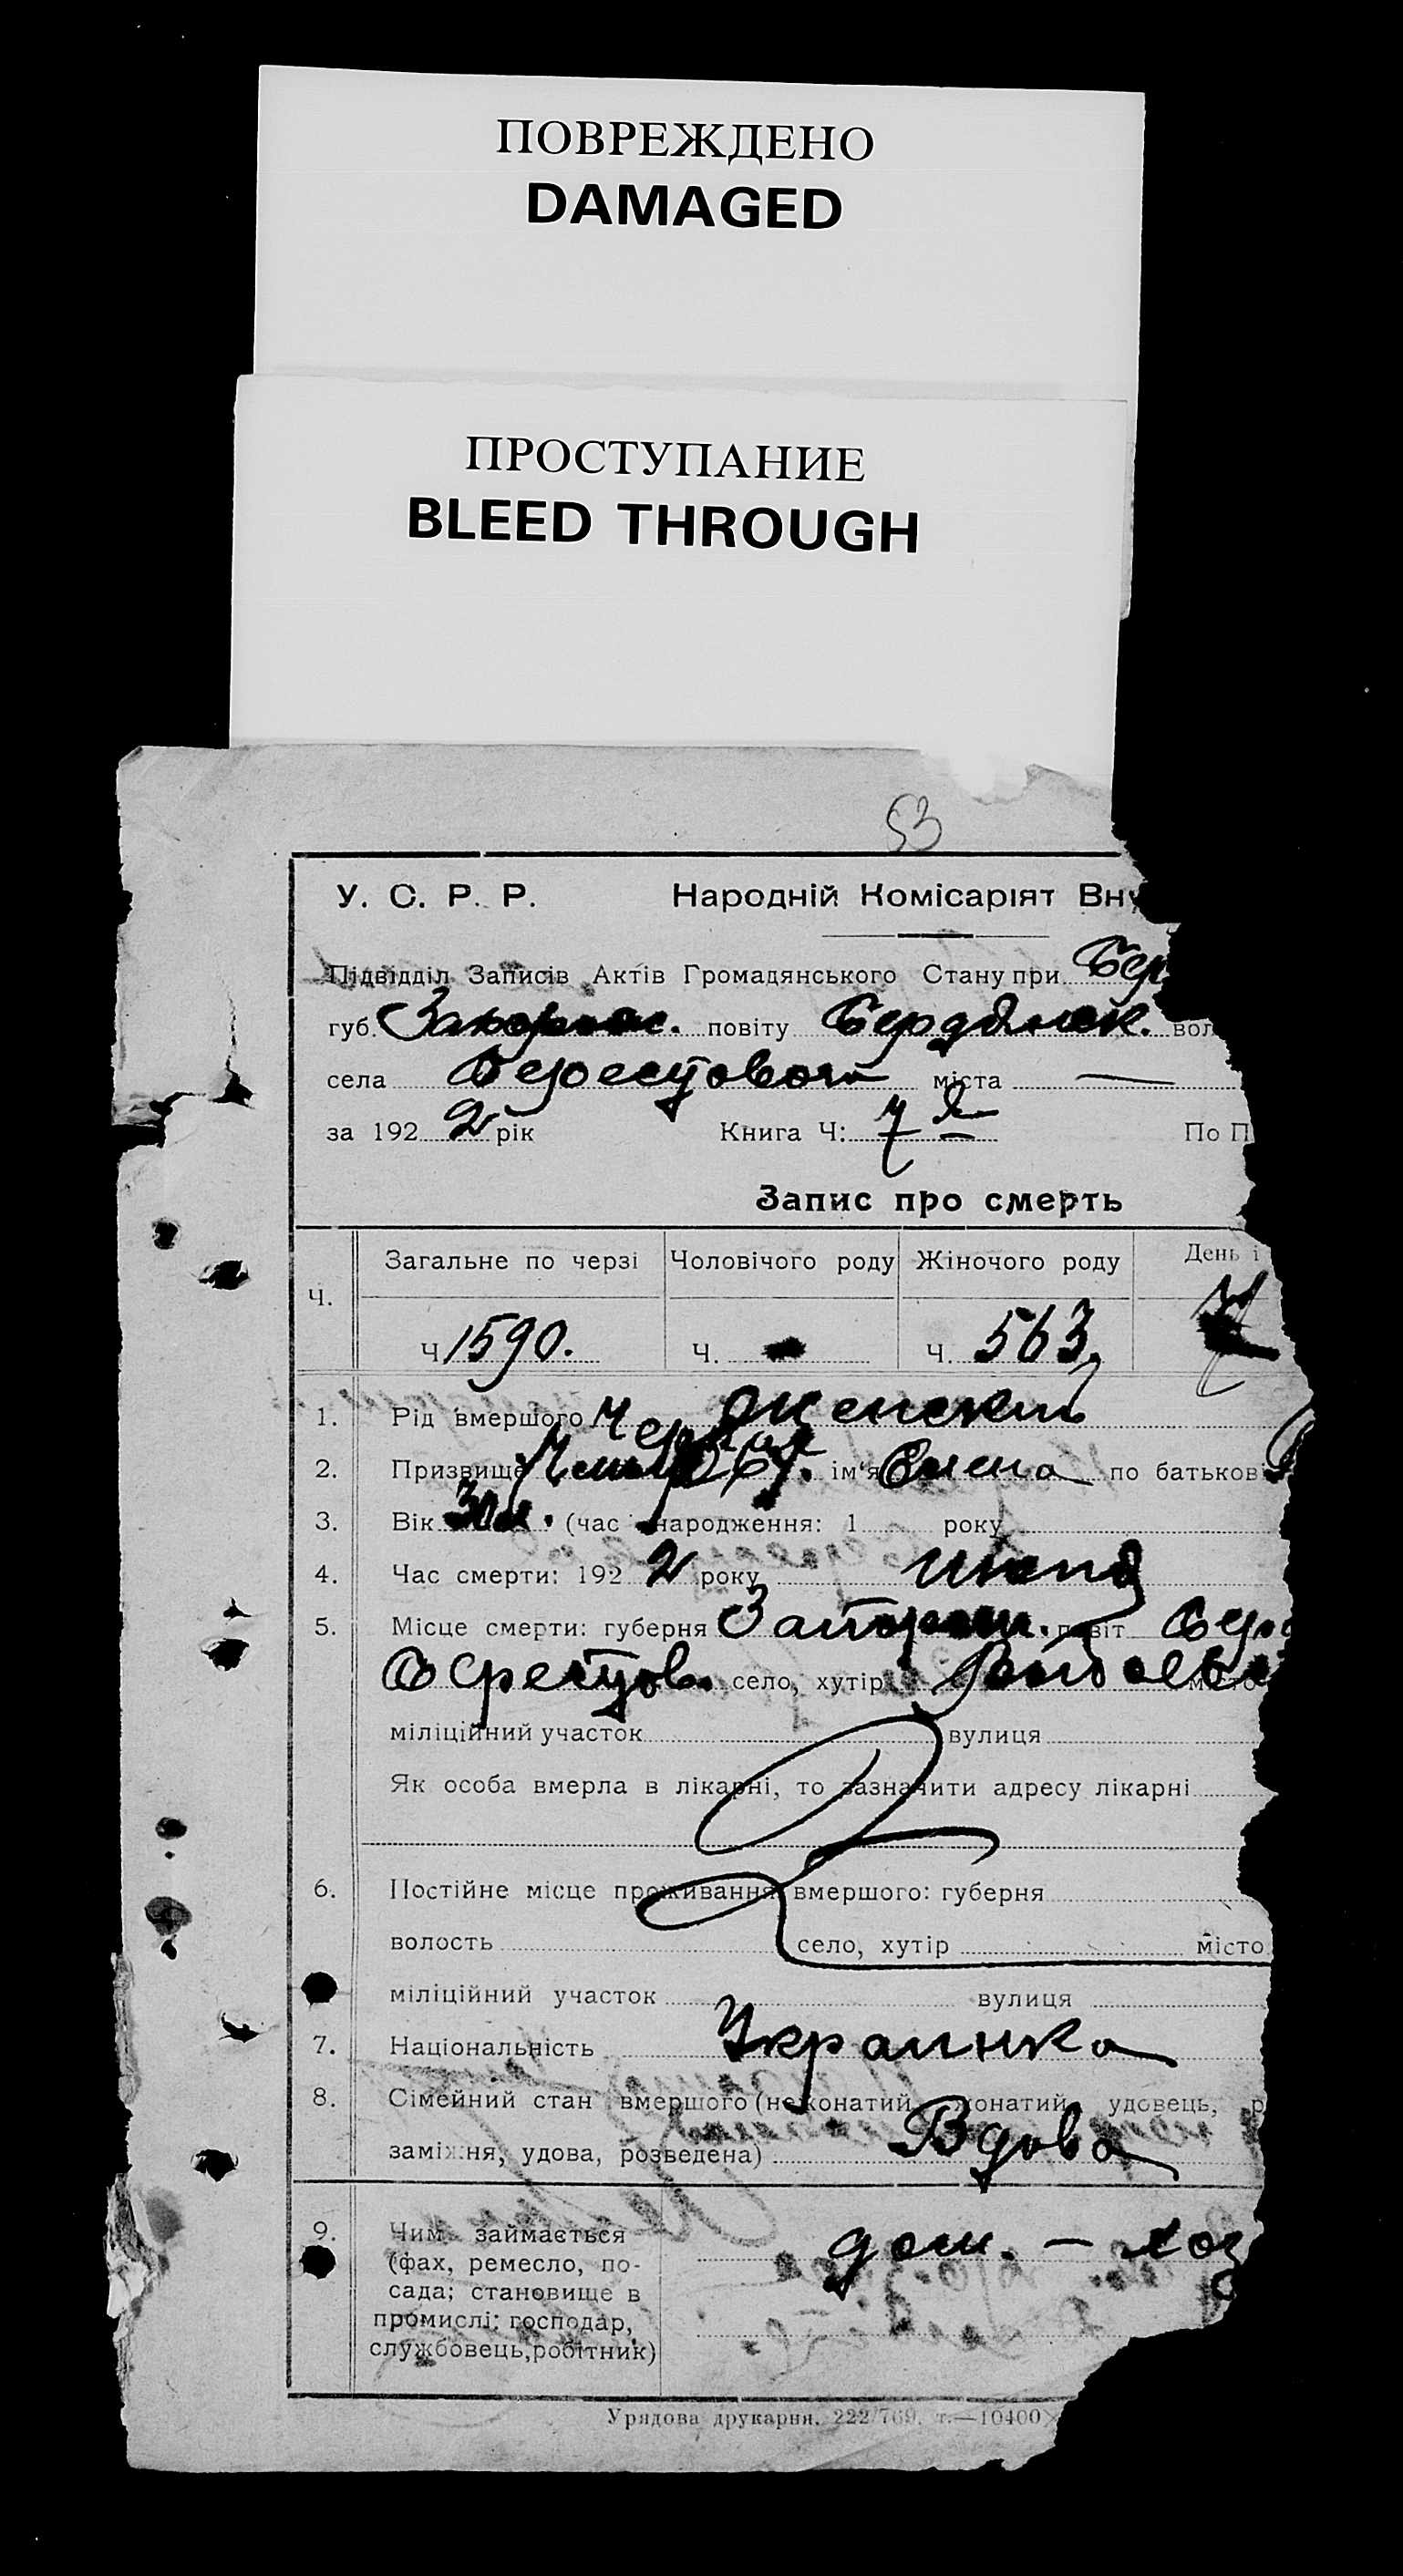 ПОВРЕЖДЕНО
DAMAGED
ПРОСТУПАНИЕ
BLEED THROUGH
53
У. С. Р. Р. Народній Комісаріят Вну
Підвідділ Записів Актів Громадянського Стану при Бер
губ. Запорож. повіту Бердянск. вол
села Берестового міста —
за 192 2 рік Книга Ч: 7 По П
Запис про смерть
Ч. Загальне по черзі Чоловічого роду Жіночого роду День і
Ч 1590. Ч. Ч. 563.
1. Рід вмершого Женский
2. Призвище ім'я Елена по батькові
3. Вік (час народження: 1 року
4. Час смерти: 192 2 року
5. Місце смерти: губерня Запорож. повіт Бер
Берестов. село, хутір місто
міліційний участок вулиця
Як особа вмерла в лікарні, то зазначити адресу лікарні
6. Постійне місце проживання вмершого: губерня
волость село, хутір місто
міліційний участок вулиця
7. Національність Украинка
8. Сімейний стан вмершого (нежонатий, жонатий, удовець, р
заміжня, удова, розведена) Вдова
9. Чим займається
(фах, ремесло, по-
сада; становище в
промислі: господар,
службовець, робітник)
дом. — хоз
Урядова друкарня. 222/769. т.—10400